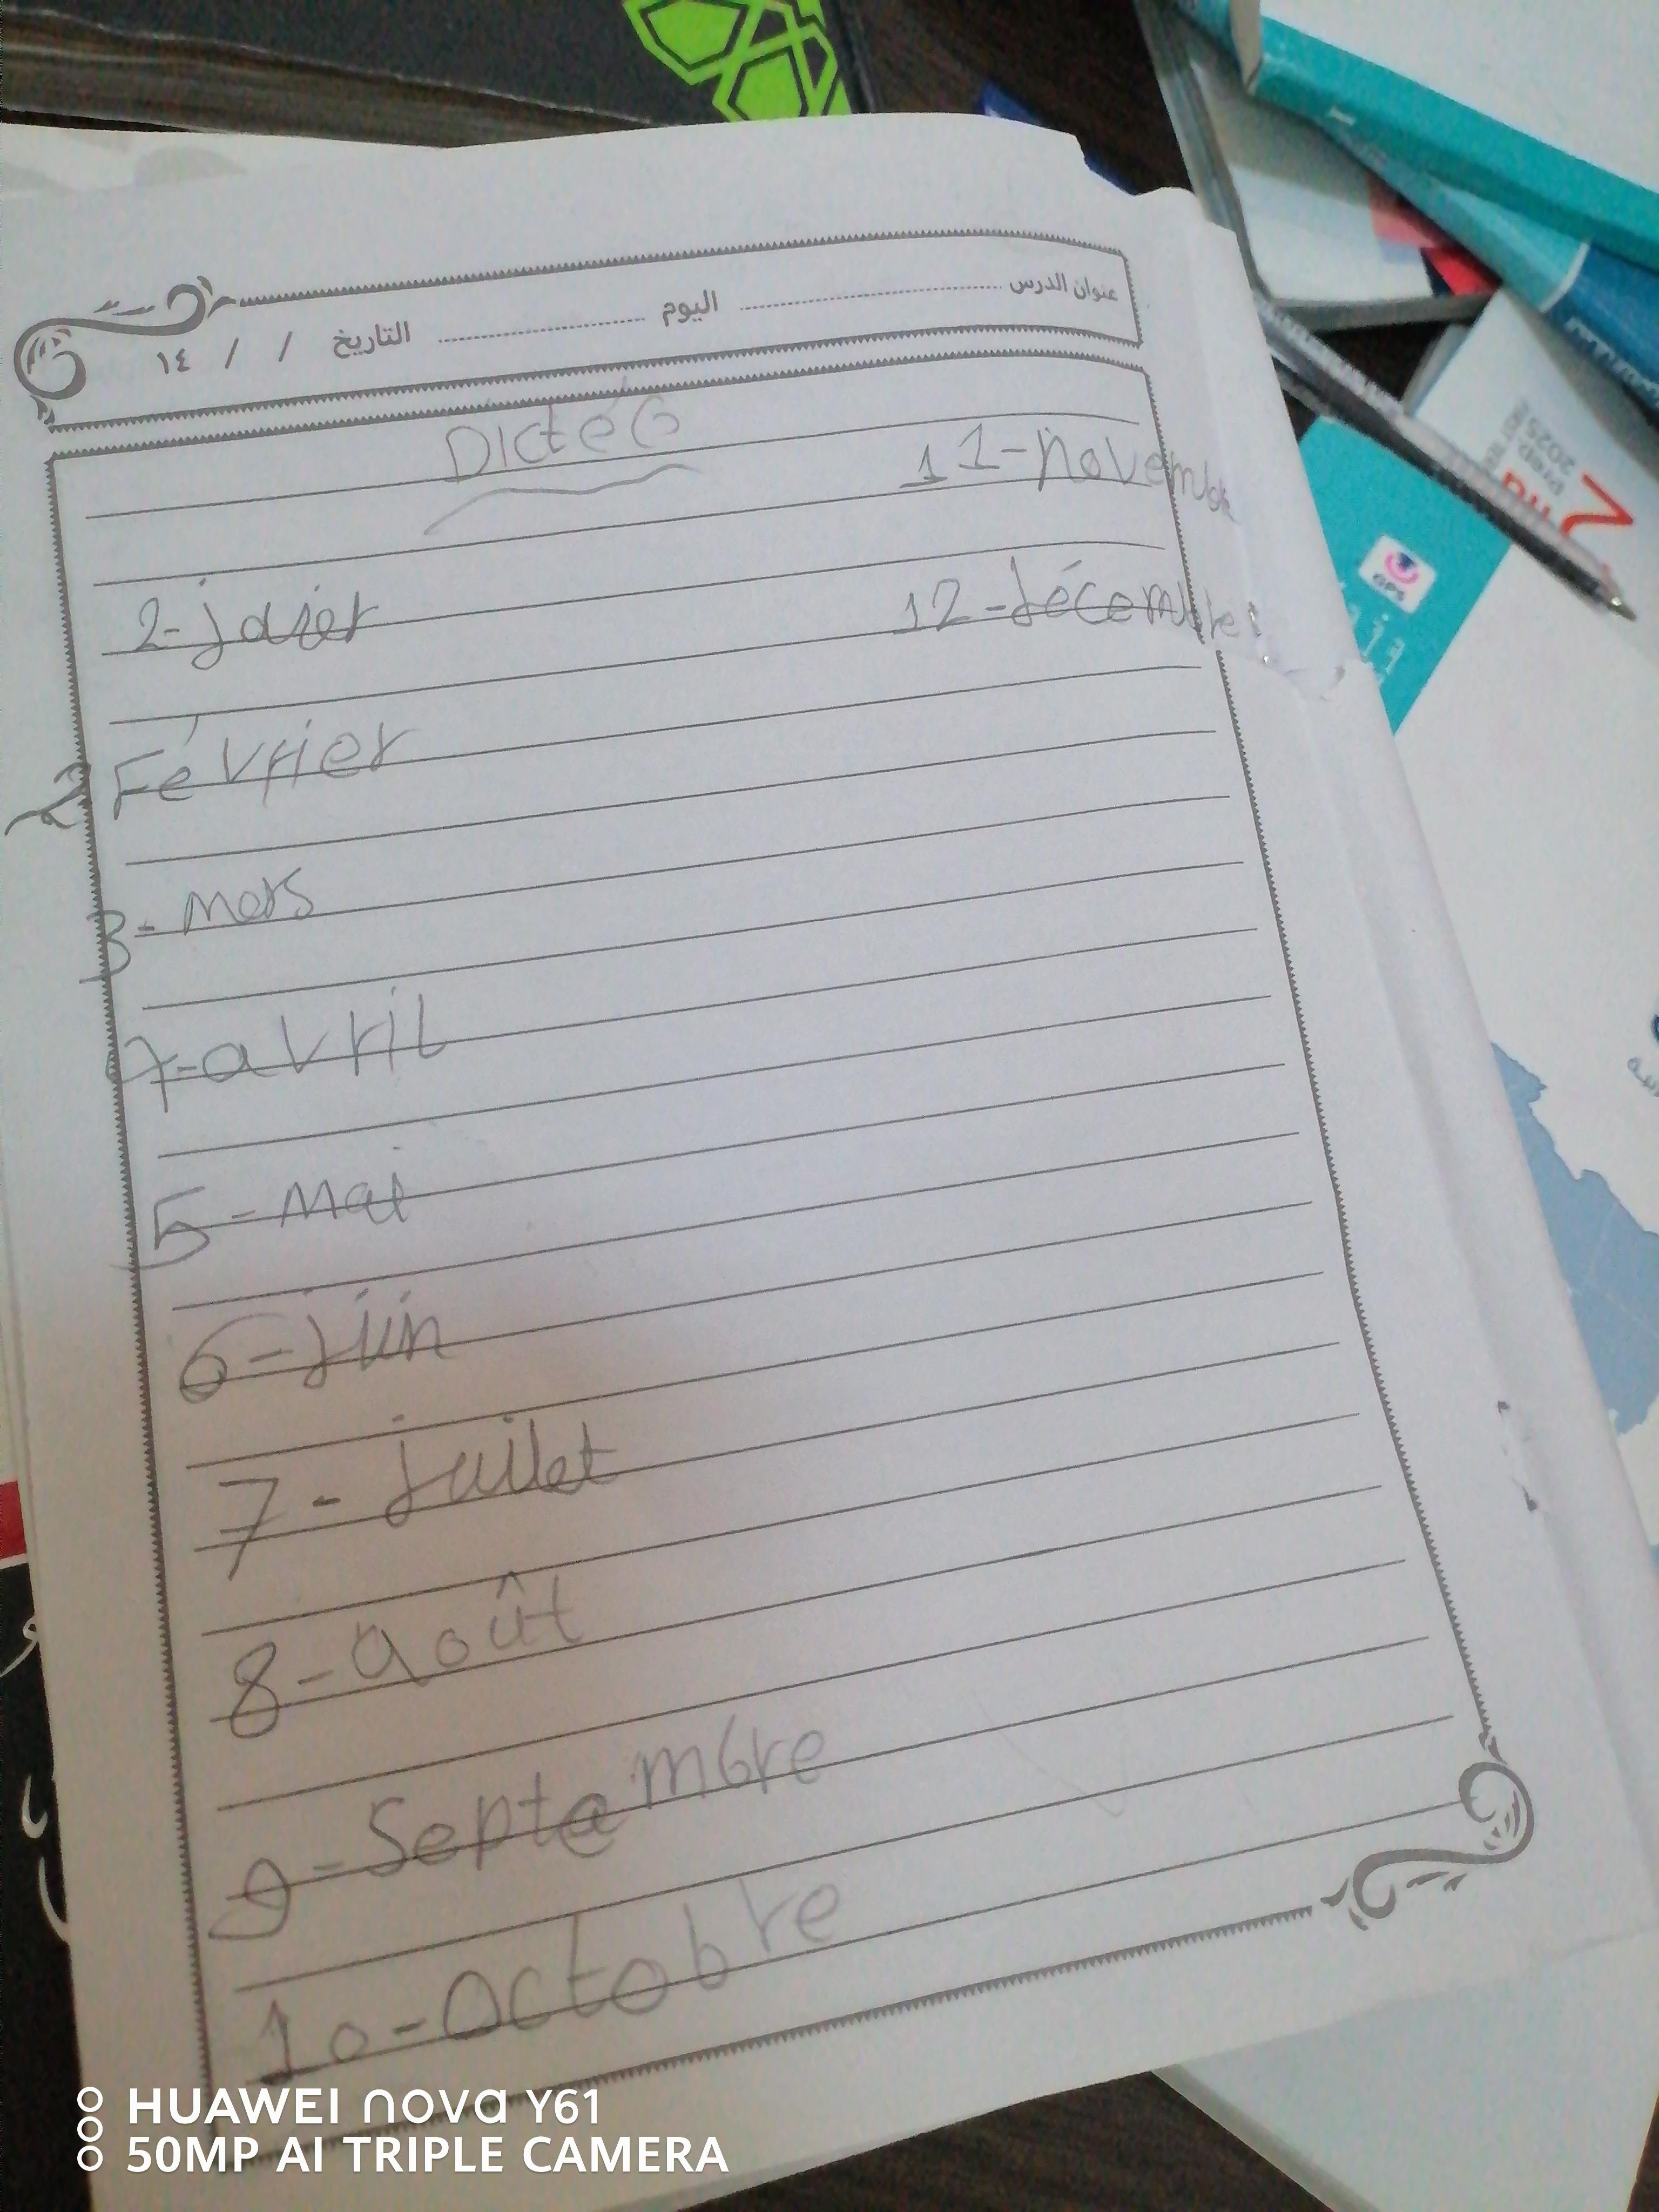 عنوان الدرس ........ اليوم ........ التاريخ / / ١٤
Dicteé
11-novembre
2-jaier
12-décembre
2 Février
3- mars
7-avril
5-mai
6-juin
7- juillet
8-août
9-Septembre
10-Octobre
2025
GPS
HUAWEI nova Y61
50MP AI TRIPLE CAMERA